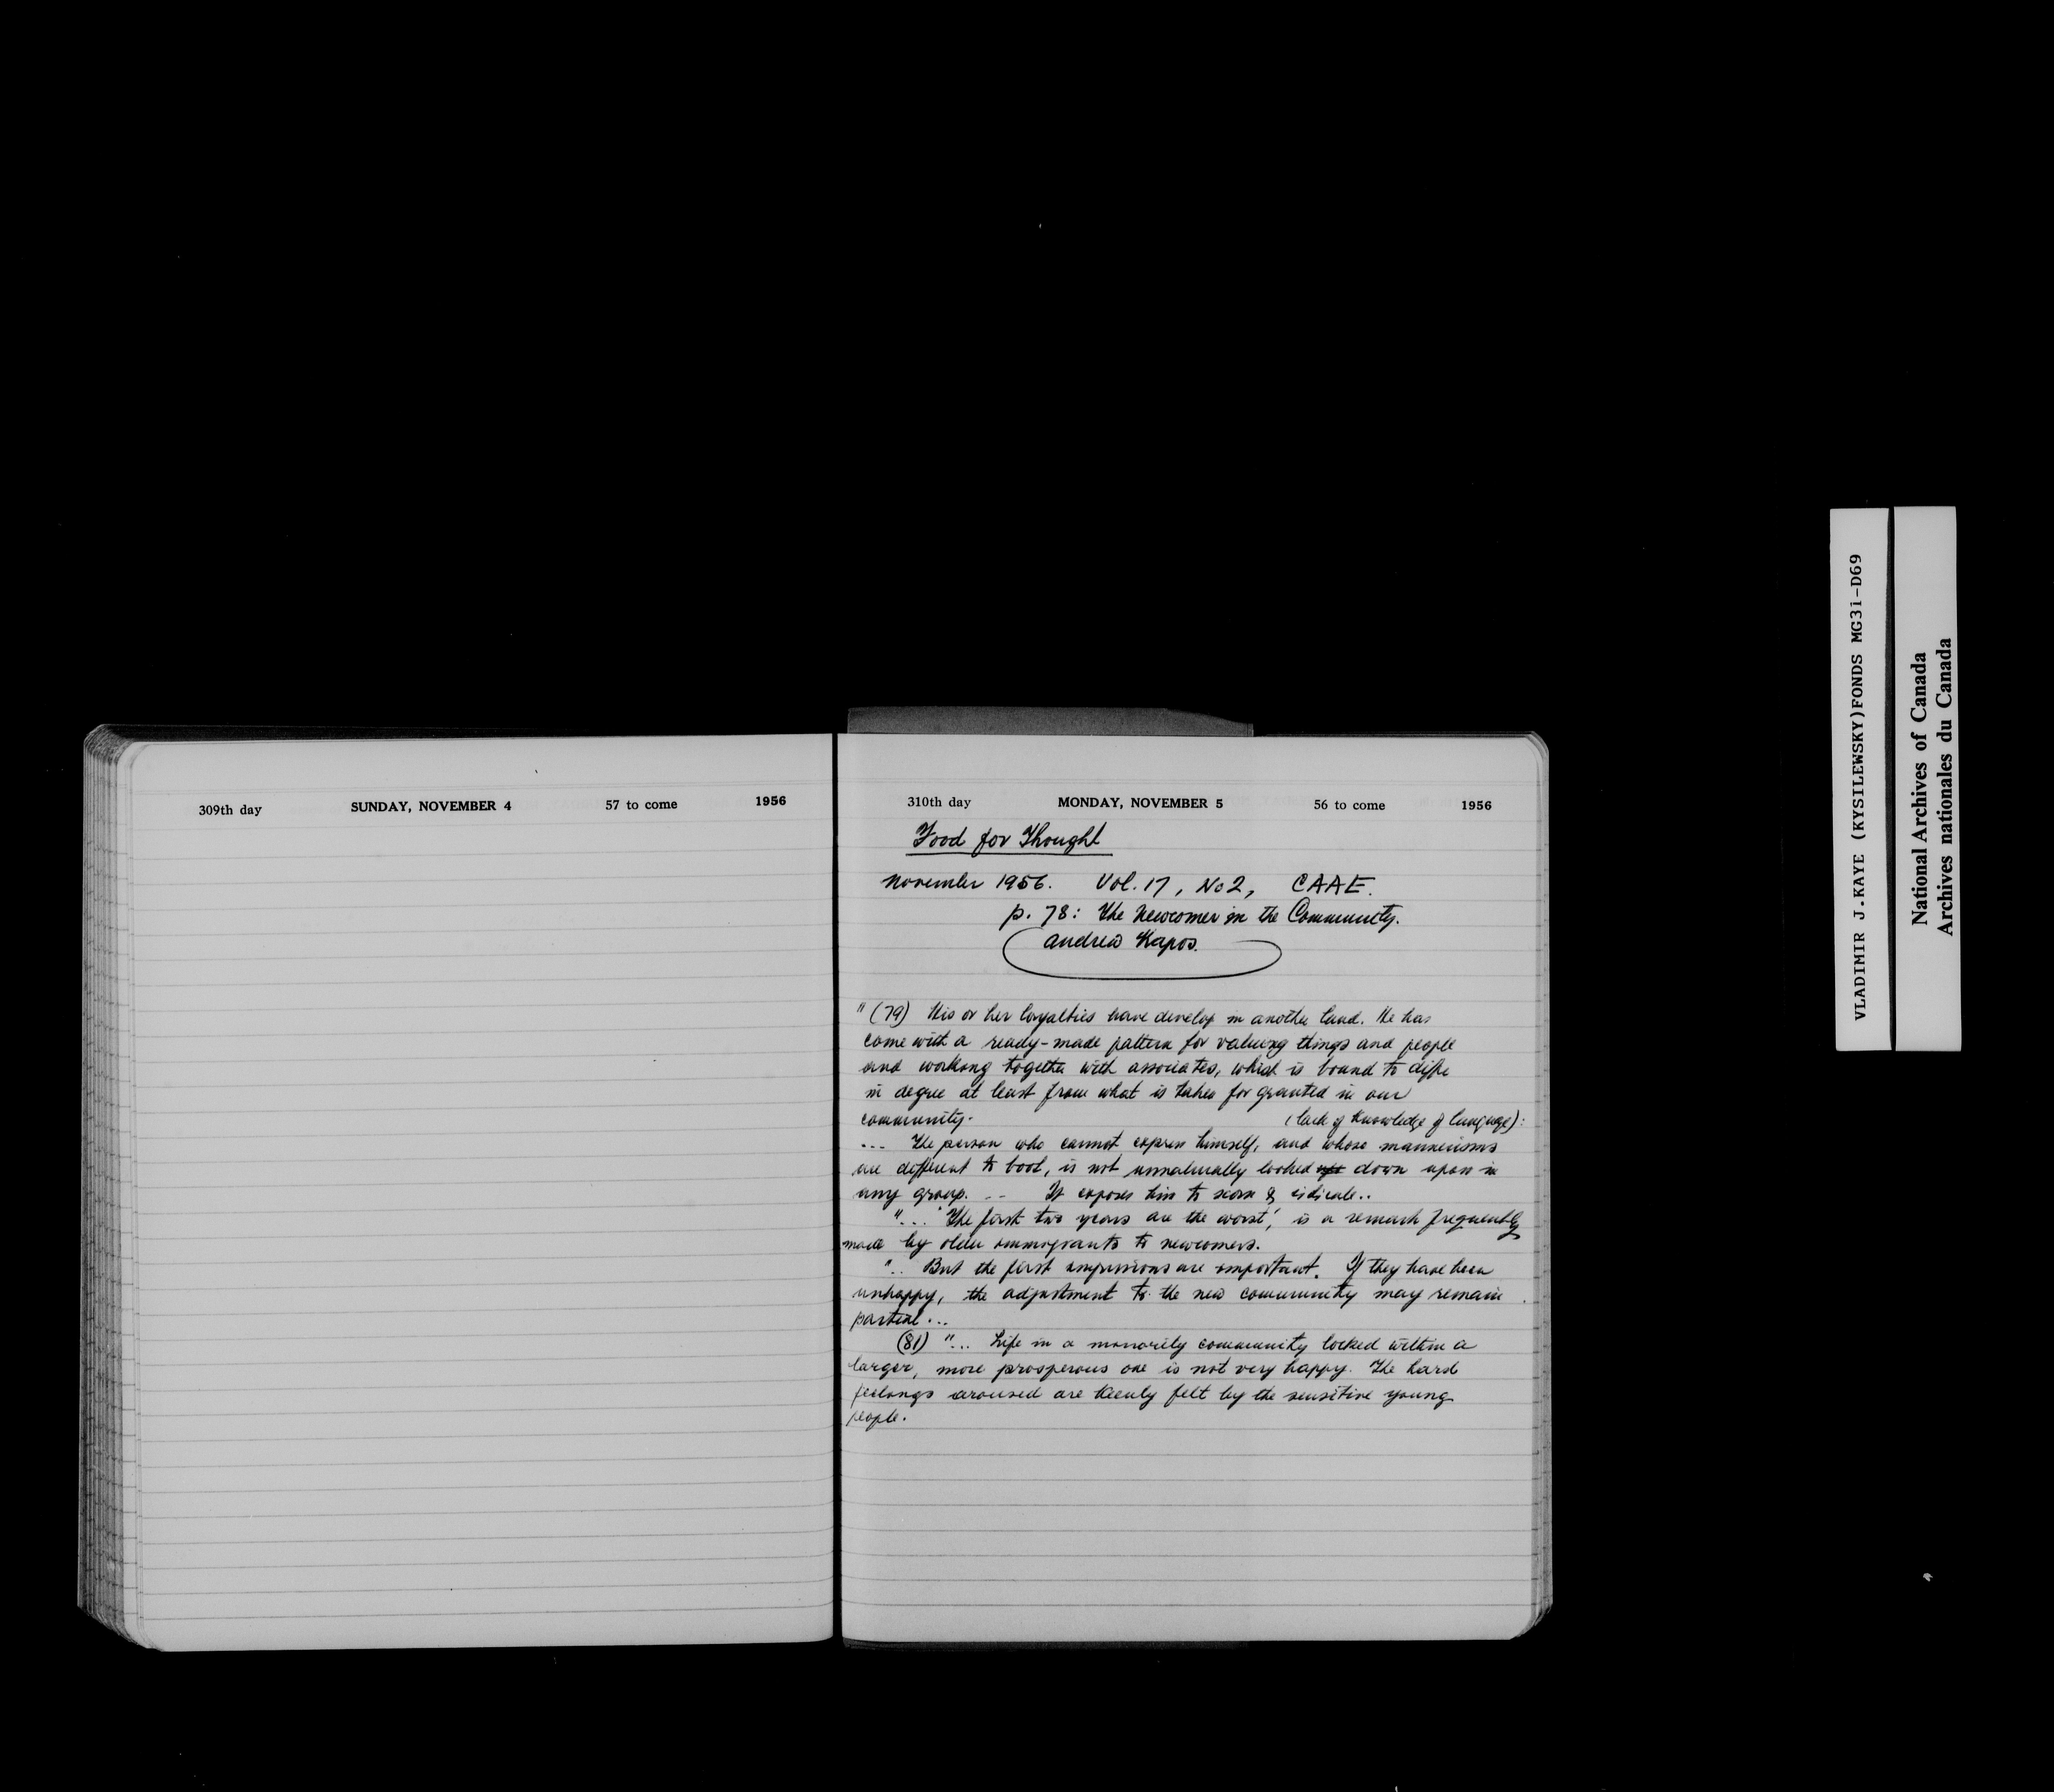 309th day SUNDAY, NOVEMBER 4 57 to come 1956
310th day MONDAY, NOVEMBER 5 56 to come 1956
Food for Thought
November 1956. Vol. 17, No 2, CAAE.
p. 78: The Newcomer in the Community.
Andrew Kapos.
" (79) His or her loyalties have develop in another land. He has
come with a ready-made pattern for valuing things and people
and working together with associates, which is bound to diffe
in degree at least from what is taken for granted in our
community. (lack of knowledge of language):
... The person who cannot express himself, and whose mannerisms
are different to boot, is not unnaturally looked down upon in
any group. -- It exposes him to scorn & ridicule..
"... 'The first two years are the worst', is a remark frequently
made by older immigrants to newcomers.
".. But the first impressions are important. If they have been
unhappy, the adjustment to the new community may remain
partial...
(81) "... Life in a minority community locked within a
larger, more prosperous one is not very happy. The hard
feelings aroused are keenly felt by the sensitive young
people.
VLADIMIR J.KAYE (KYSILEWSKY)FONDS MG31-D69
National Archives of Canada
Archives nationales du Canada